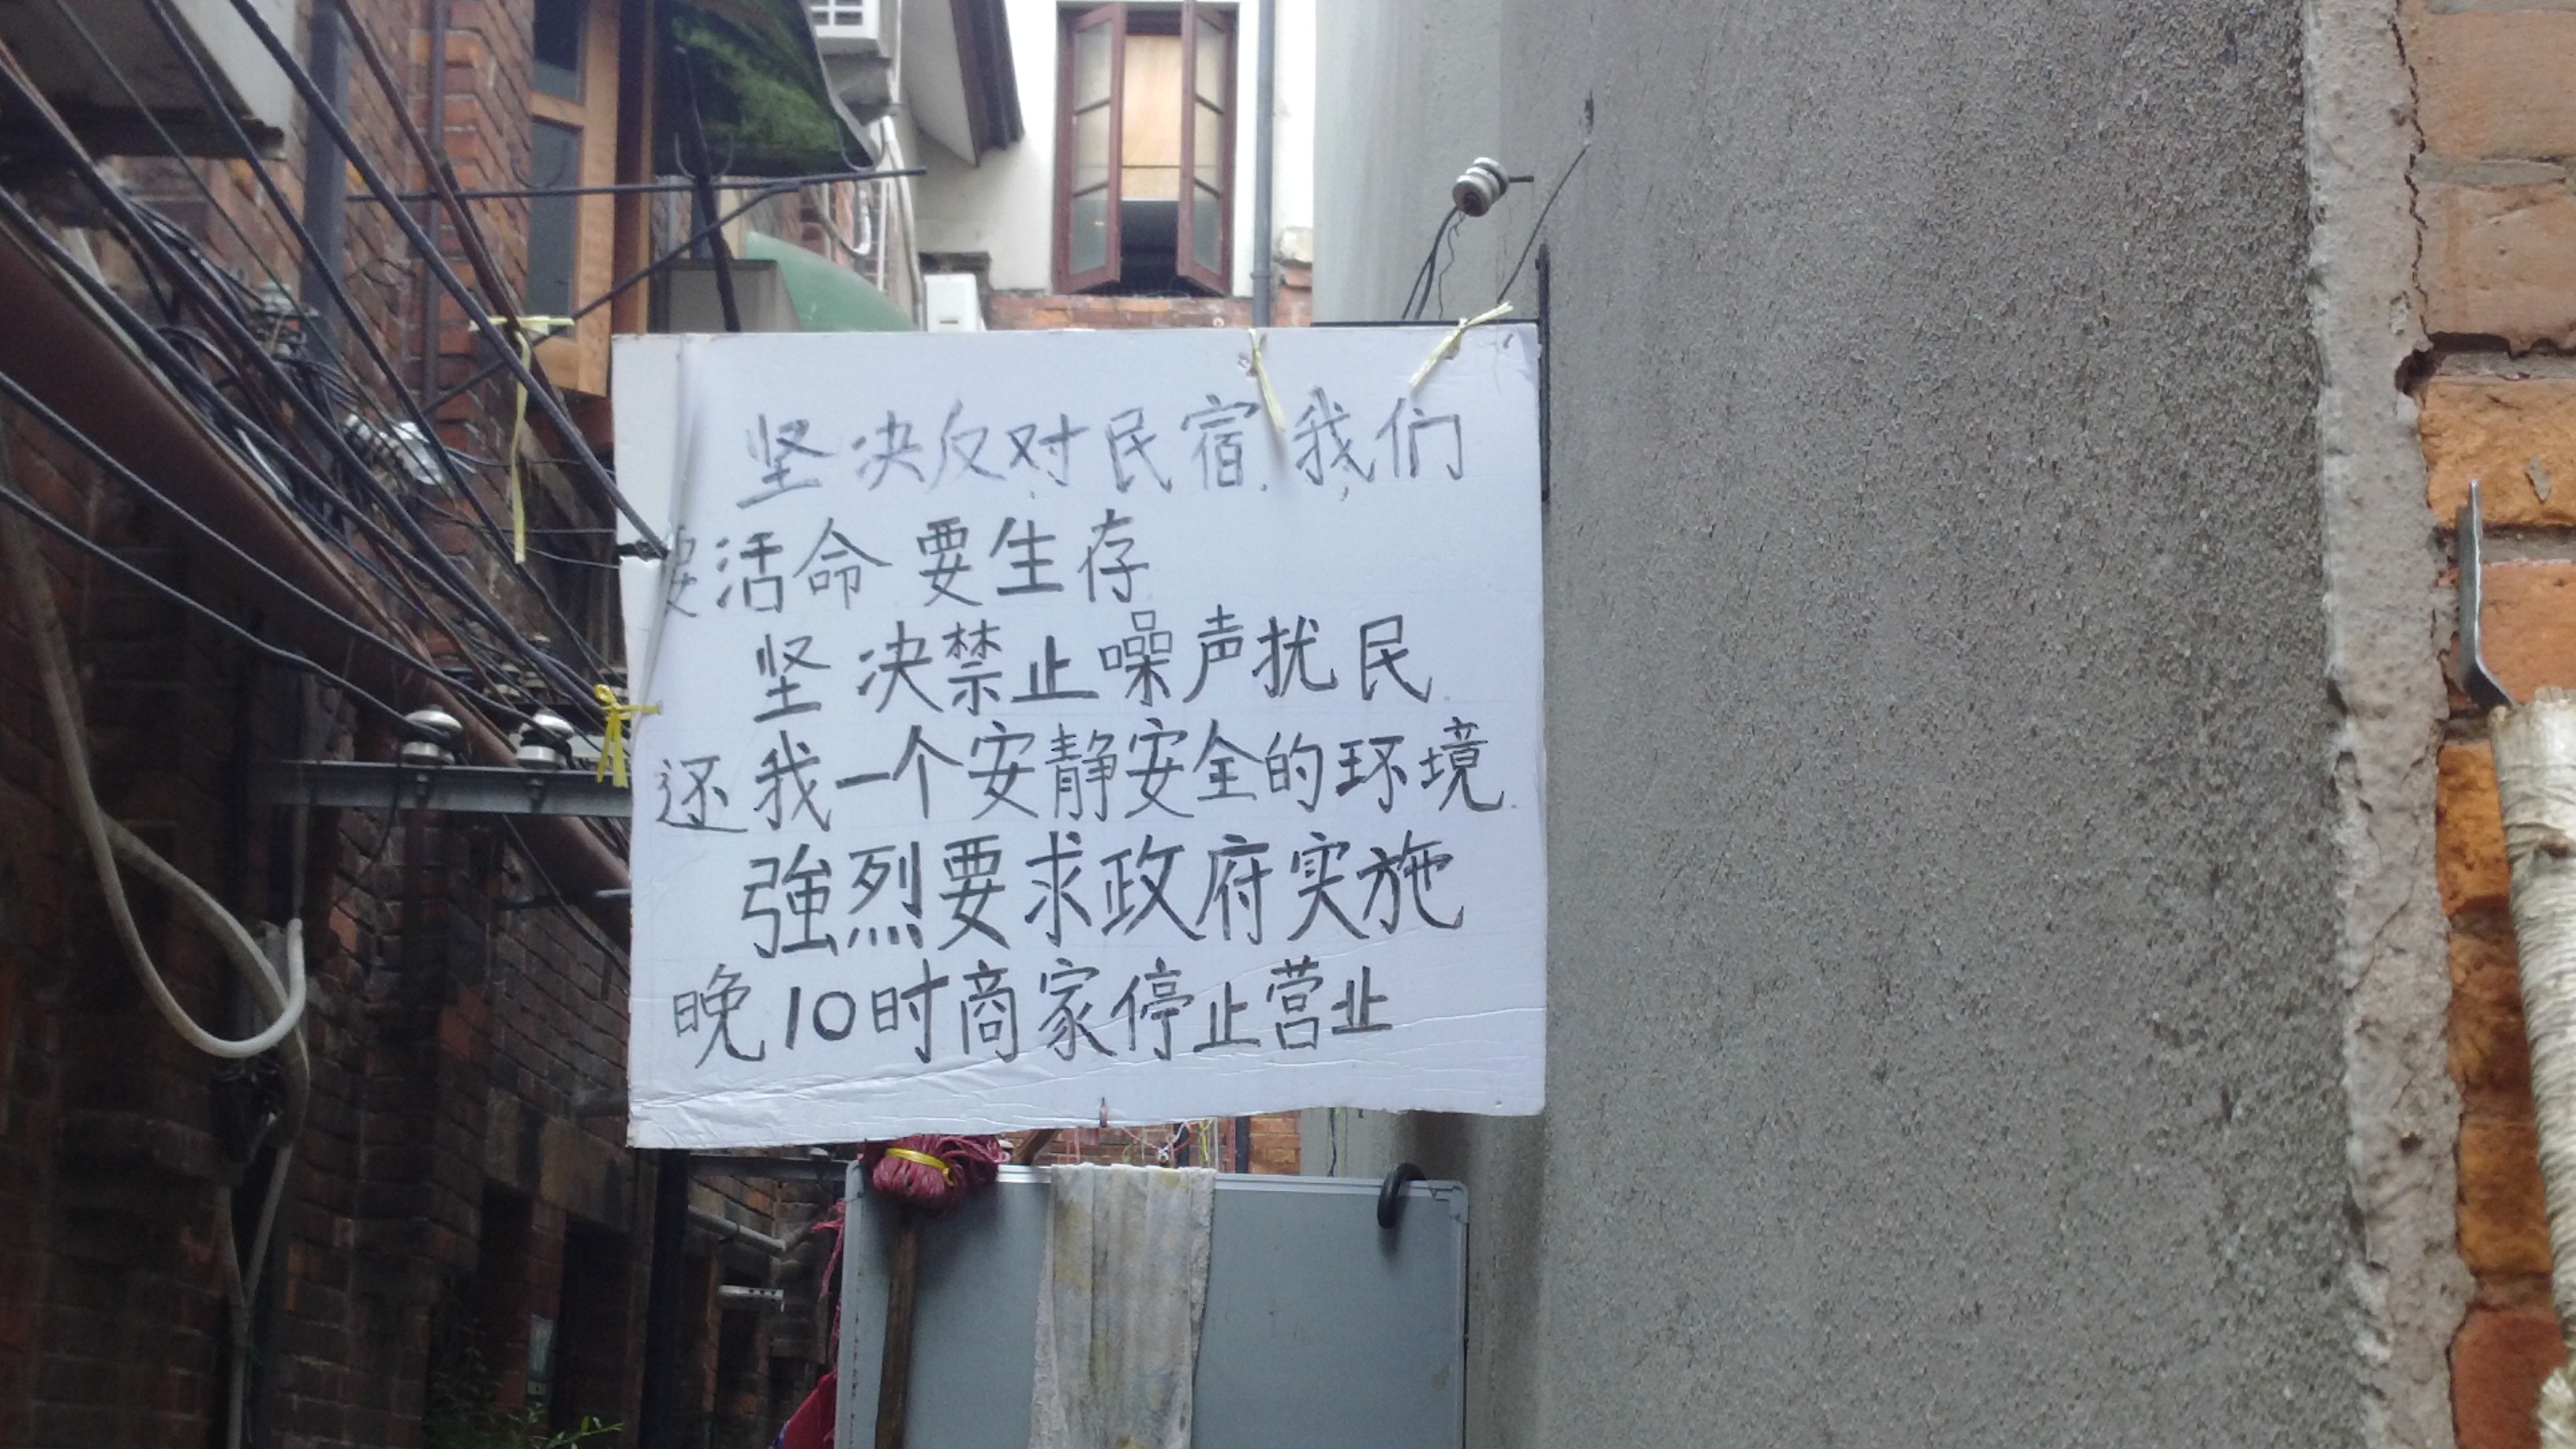 坚决反对民宿.我们
要活命 要生存
坚决禁止噪声扰民.
还我一个安静安全的环境.
強烈要求政府实施
晚10时商家停止营业